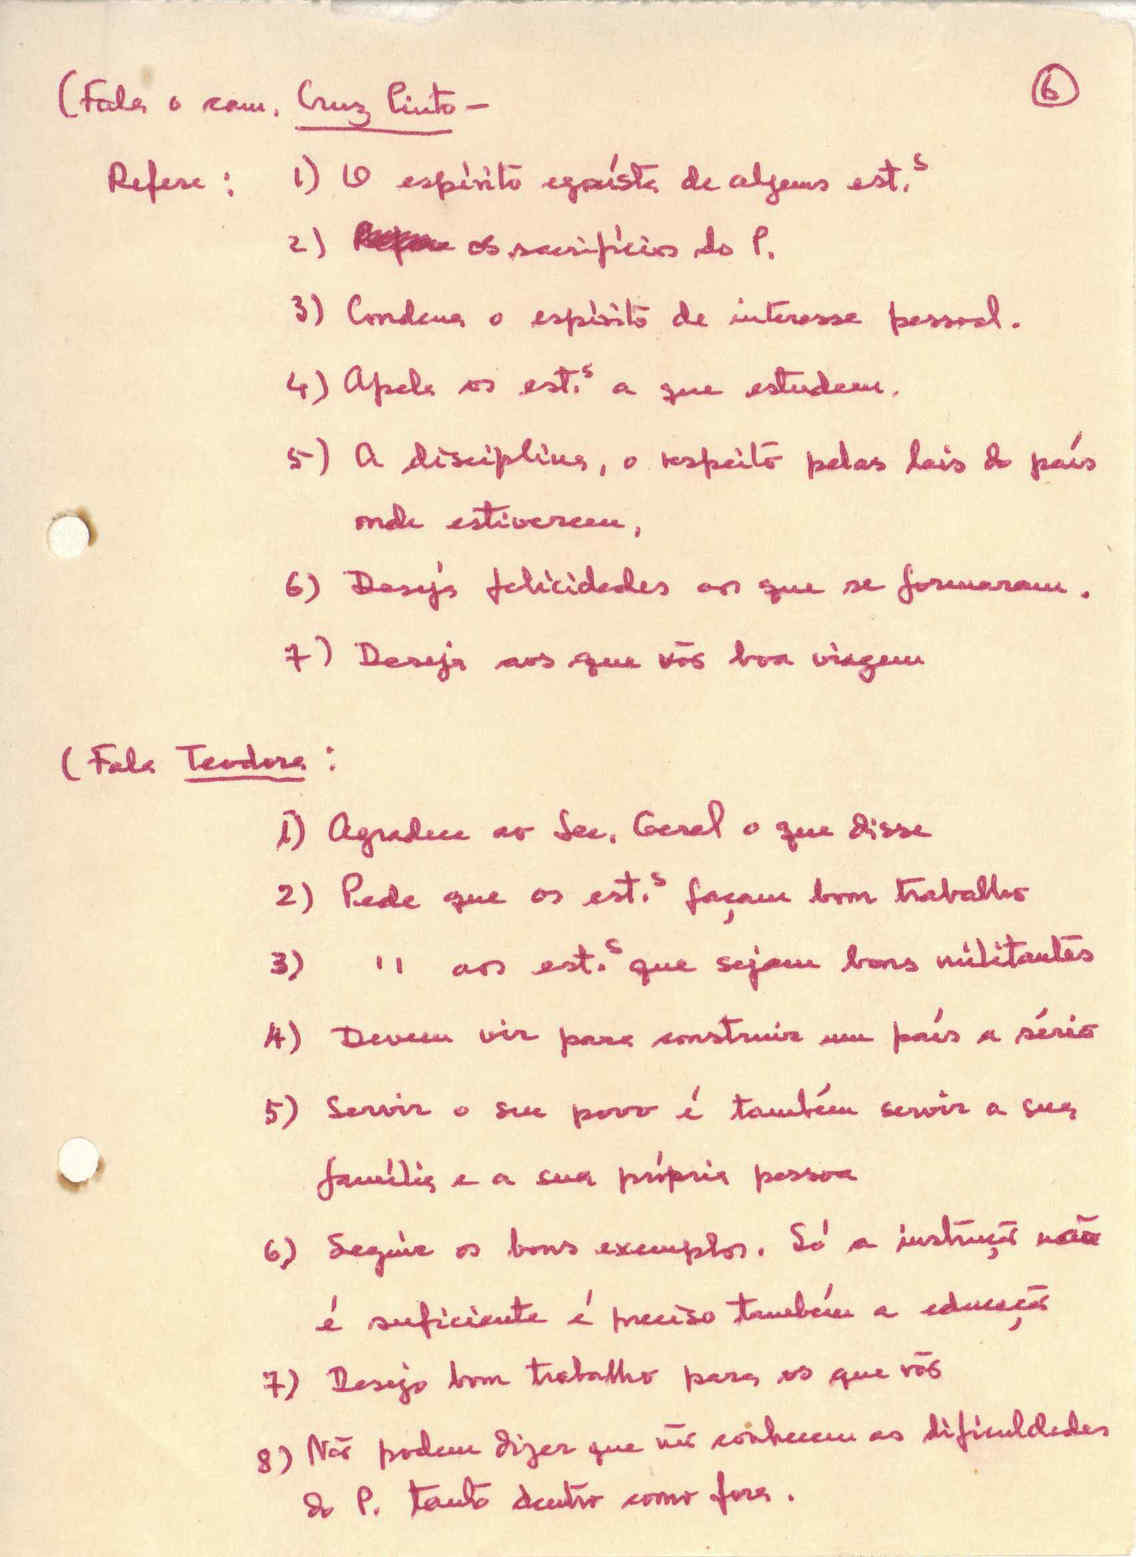 (Fala o cam. Cruz Pinto — 6
Refere: 1) O espírito egoísta de alguns est.s
2) os sacrifícios do P.
3) Condena o espírito de interesse pessoal.
4) Apela os est.s a que estudem.
5) A disciplina, o respeito pelas leis do país
onde estiverem,
6) Deseja felicidades aos que se formaram.
7) Deseja aos que vão boa viagem
(Fala Teodora:
1) Agradece ao Sec. Geral o que disse
2) Pede que os est.s façam bom trabalho
3) " aos est.s que sejam bons militantes
4) Devem vir para construir um país a sério
5) Servir o seu povo é também servir a sua
família e a sua própria pessoa
6) Seguir os bons exemplos. Só a instrução não
é suficiente é preciso também a educação
7) Desejo bom trabalho para os que vão
8) Não podem dizer que não conhecem as dificuldades
do P. tanto dentro como fora.